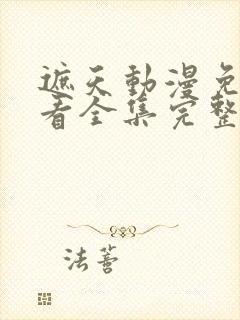 遮天動漫免
看全集完整
法蓍